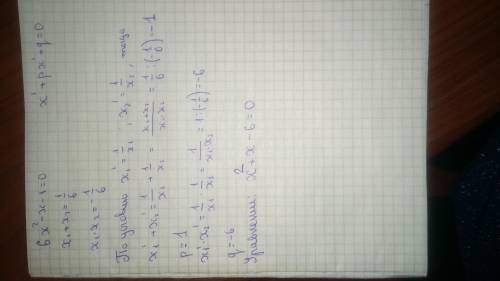 6x² - x - 1 = 0    x² + px + q = 0
x₁ + x₂ = 1/6
x₁ · x₂ = -1/6
По условию x₁' = 1/x₁ , x₂' = 1/x₂ , тогда
x₁' + x₂' = 1/x₁ + 1/x₂ = (x₁+x₂)/(x₁·x₂) = 1/6 : (-1/6) = -1
p = 1
x₁' · x₂' = 1/x₁ · 1/x₂ = 1/(x₁·x₂) = 1 : (-1/6) = -6
q = -6
Уравнение: x² + x - 6 = 0